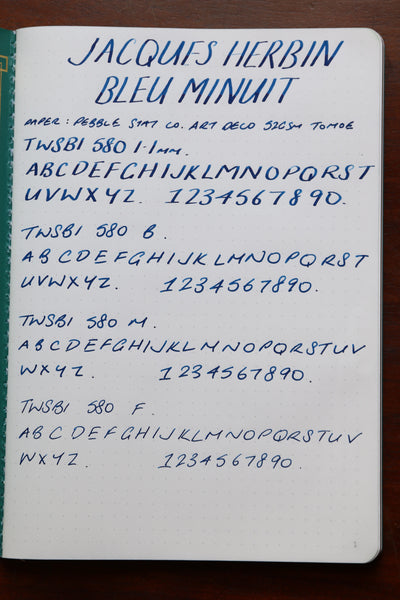 JACQUES HERBIN
BLEU MINUIT
PAPER : PEBBLE STAT CO. ART DECO 52GSM TOMOE
TWSBI 580 1.1mm.
ABCDEFGHIJKLMNOPQRST
UVWXYZ. 1234567890.
TWSBI 580 B.
ABCDEFGHIJKLMNOPQRST
UVWXYZ. 1234567890.
TWSBI 580 M.
ABCDEFGHIJKLMNOPQRSTUV
WXYZ. 1234567890.
TWSBI 580 F.
ABCDEFGHIJKLMNOPQRSTUV
WXYZ. 1234567890.